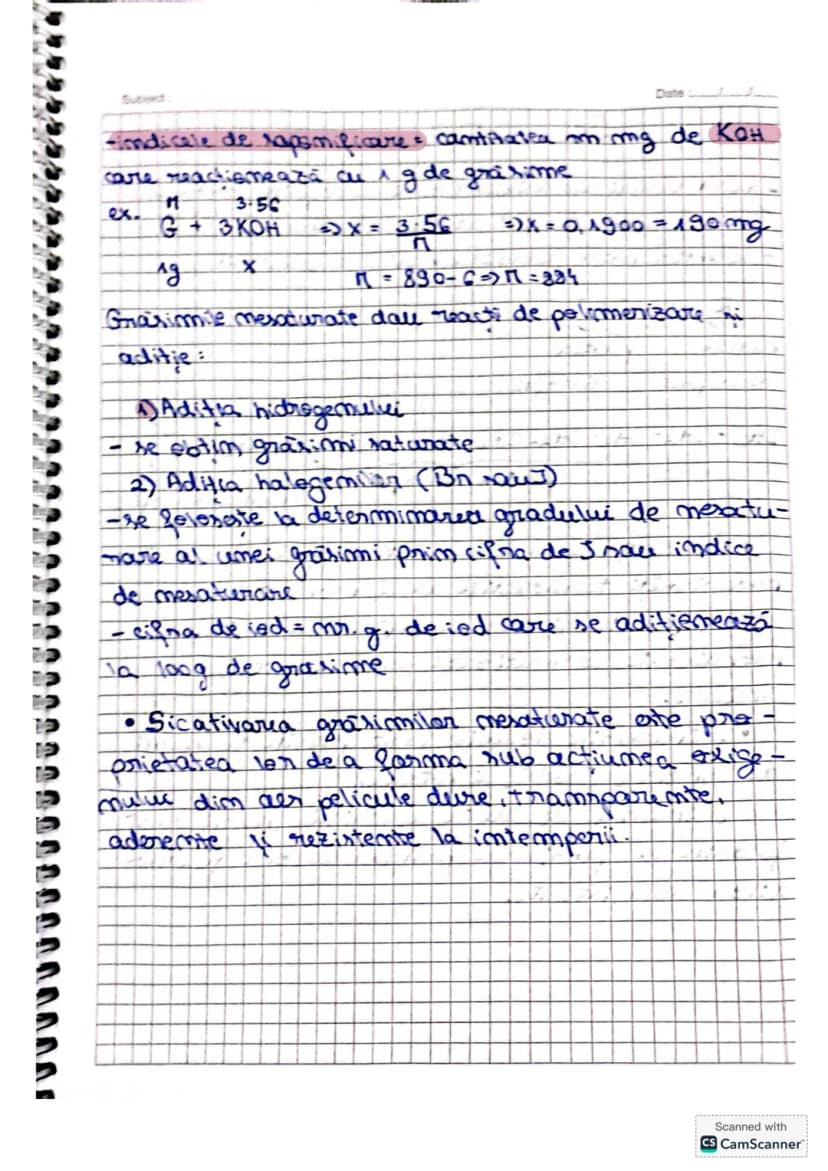 Subject
Date: __/__/__
-indicele de saponificare = cantitatea în mg de KOH
care reacționează cu 1 g de grăsime
ex. M 3·56
G + 3KOH => x = 3·56/M => x = 0,1900 = 190 mg
1g x M = 890-6 => M = 884
Grăsimile nesaturate dau reacții de polimerizare și
adiție:
1) Adiția hidrogenului
- se obțin grăsimi saturate
2) Adiția halogenilor (Br sau I)
-se folosește la determinarea gradului de nesatu-
rare al unei grăsimi prin cifra de I sau indice
de nesaturare
- cifra de iod = nr. g. de iod care se adiționează
la 100g de grasime
• Sicativarea grăsimilor nesaturate este pro-
prietatea lor de a forma sub acțiunea oxige-
nului din aer pelicule dure, transparente,
aderente și rezistente la intemperii.
Scanned with
CS CamScanner